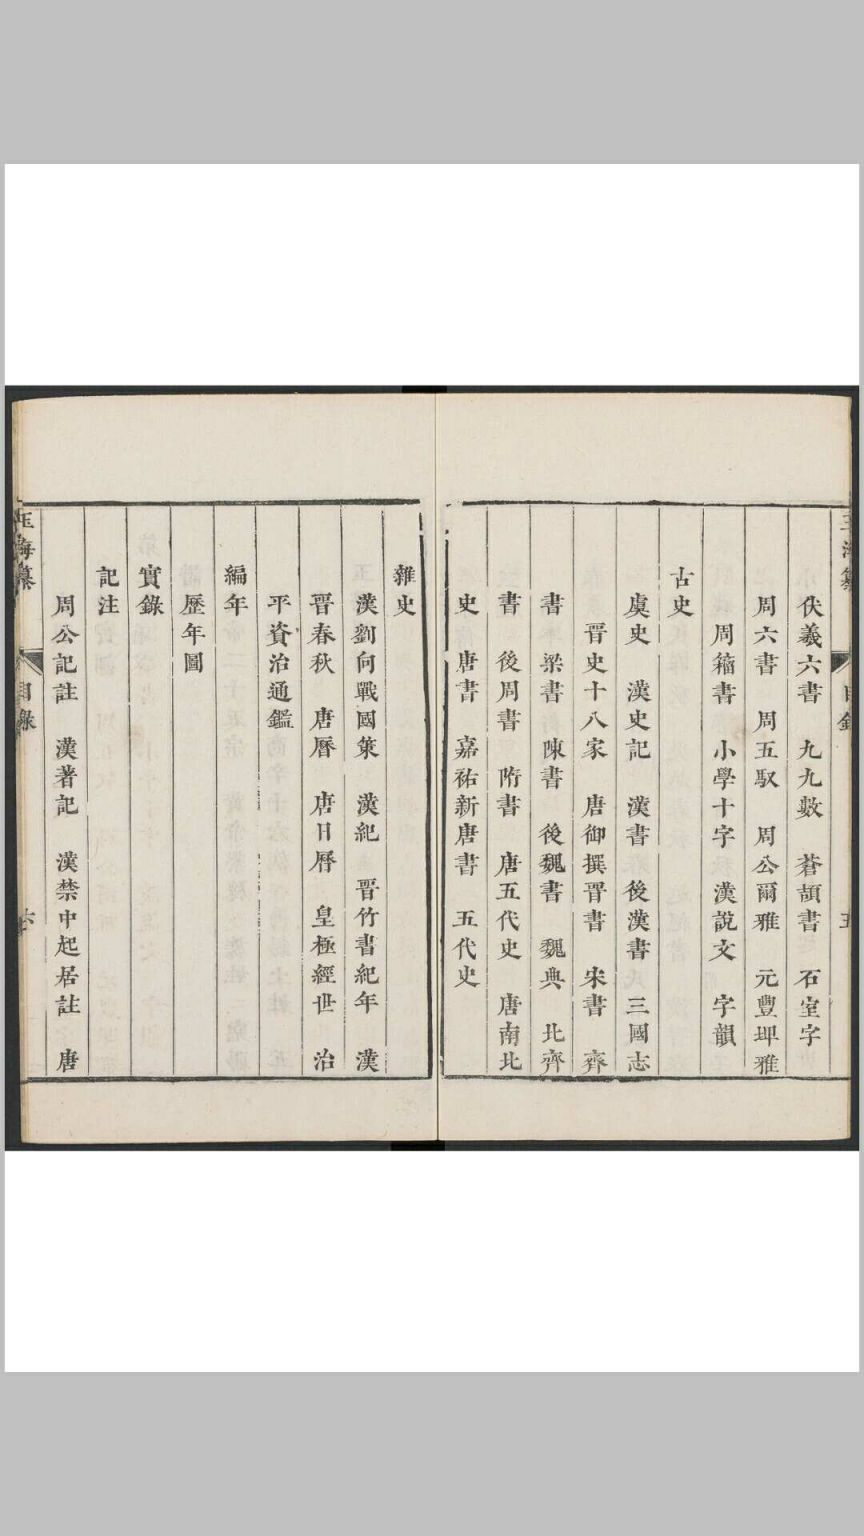 玉海纂 目錄 五
伏義六書 九九數 蒼頡書 石室字
周六書 周五馭 周公爾雅 元豐埤雅
周籀書 小學十字 漢說文 字韻
古史
虞史 漢史記 漢書 後漢書 三國志
晉史十八家 唐御撰晉書 宋書 齊
書 梁書 陳書 後魏書 魏典 北齊
書 後周書 隋書 唐五代史 唐南北
史 唐書 嘉祐新唐書 五代史
雜史
漢劉向戰國策 漢紀 晉竹書紀年 漢
晉春秋 唐曆 唐日曆 皇極經世 治
平資治通鑑
編年
歷年圖
實錄
記注
周公記註 漢著記 漢禁中起居註 唐
玉海纂 目錄 六